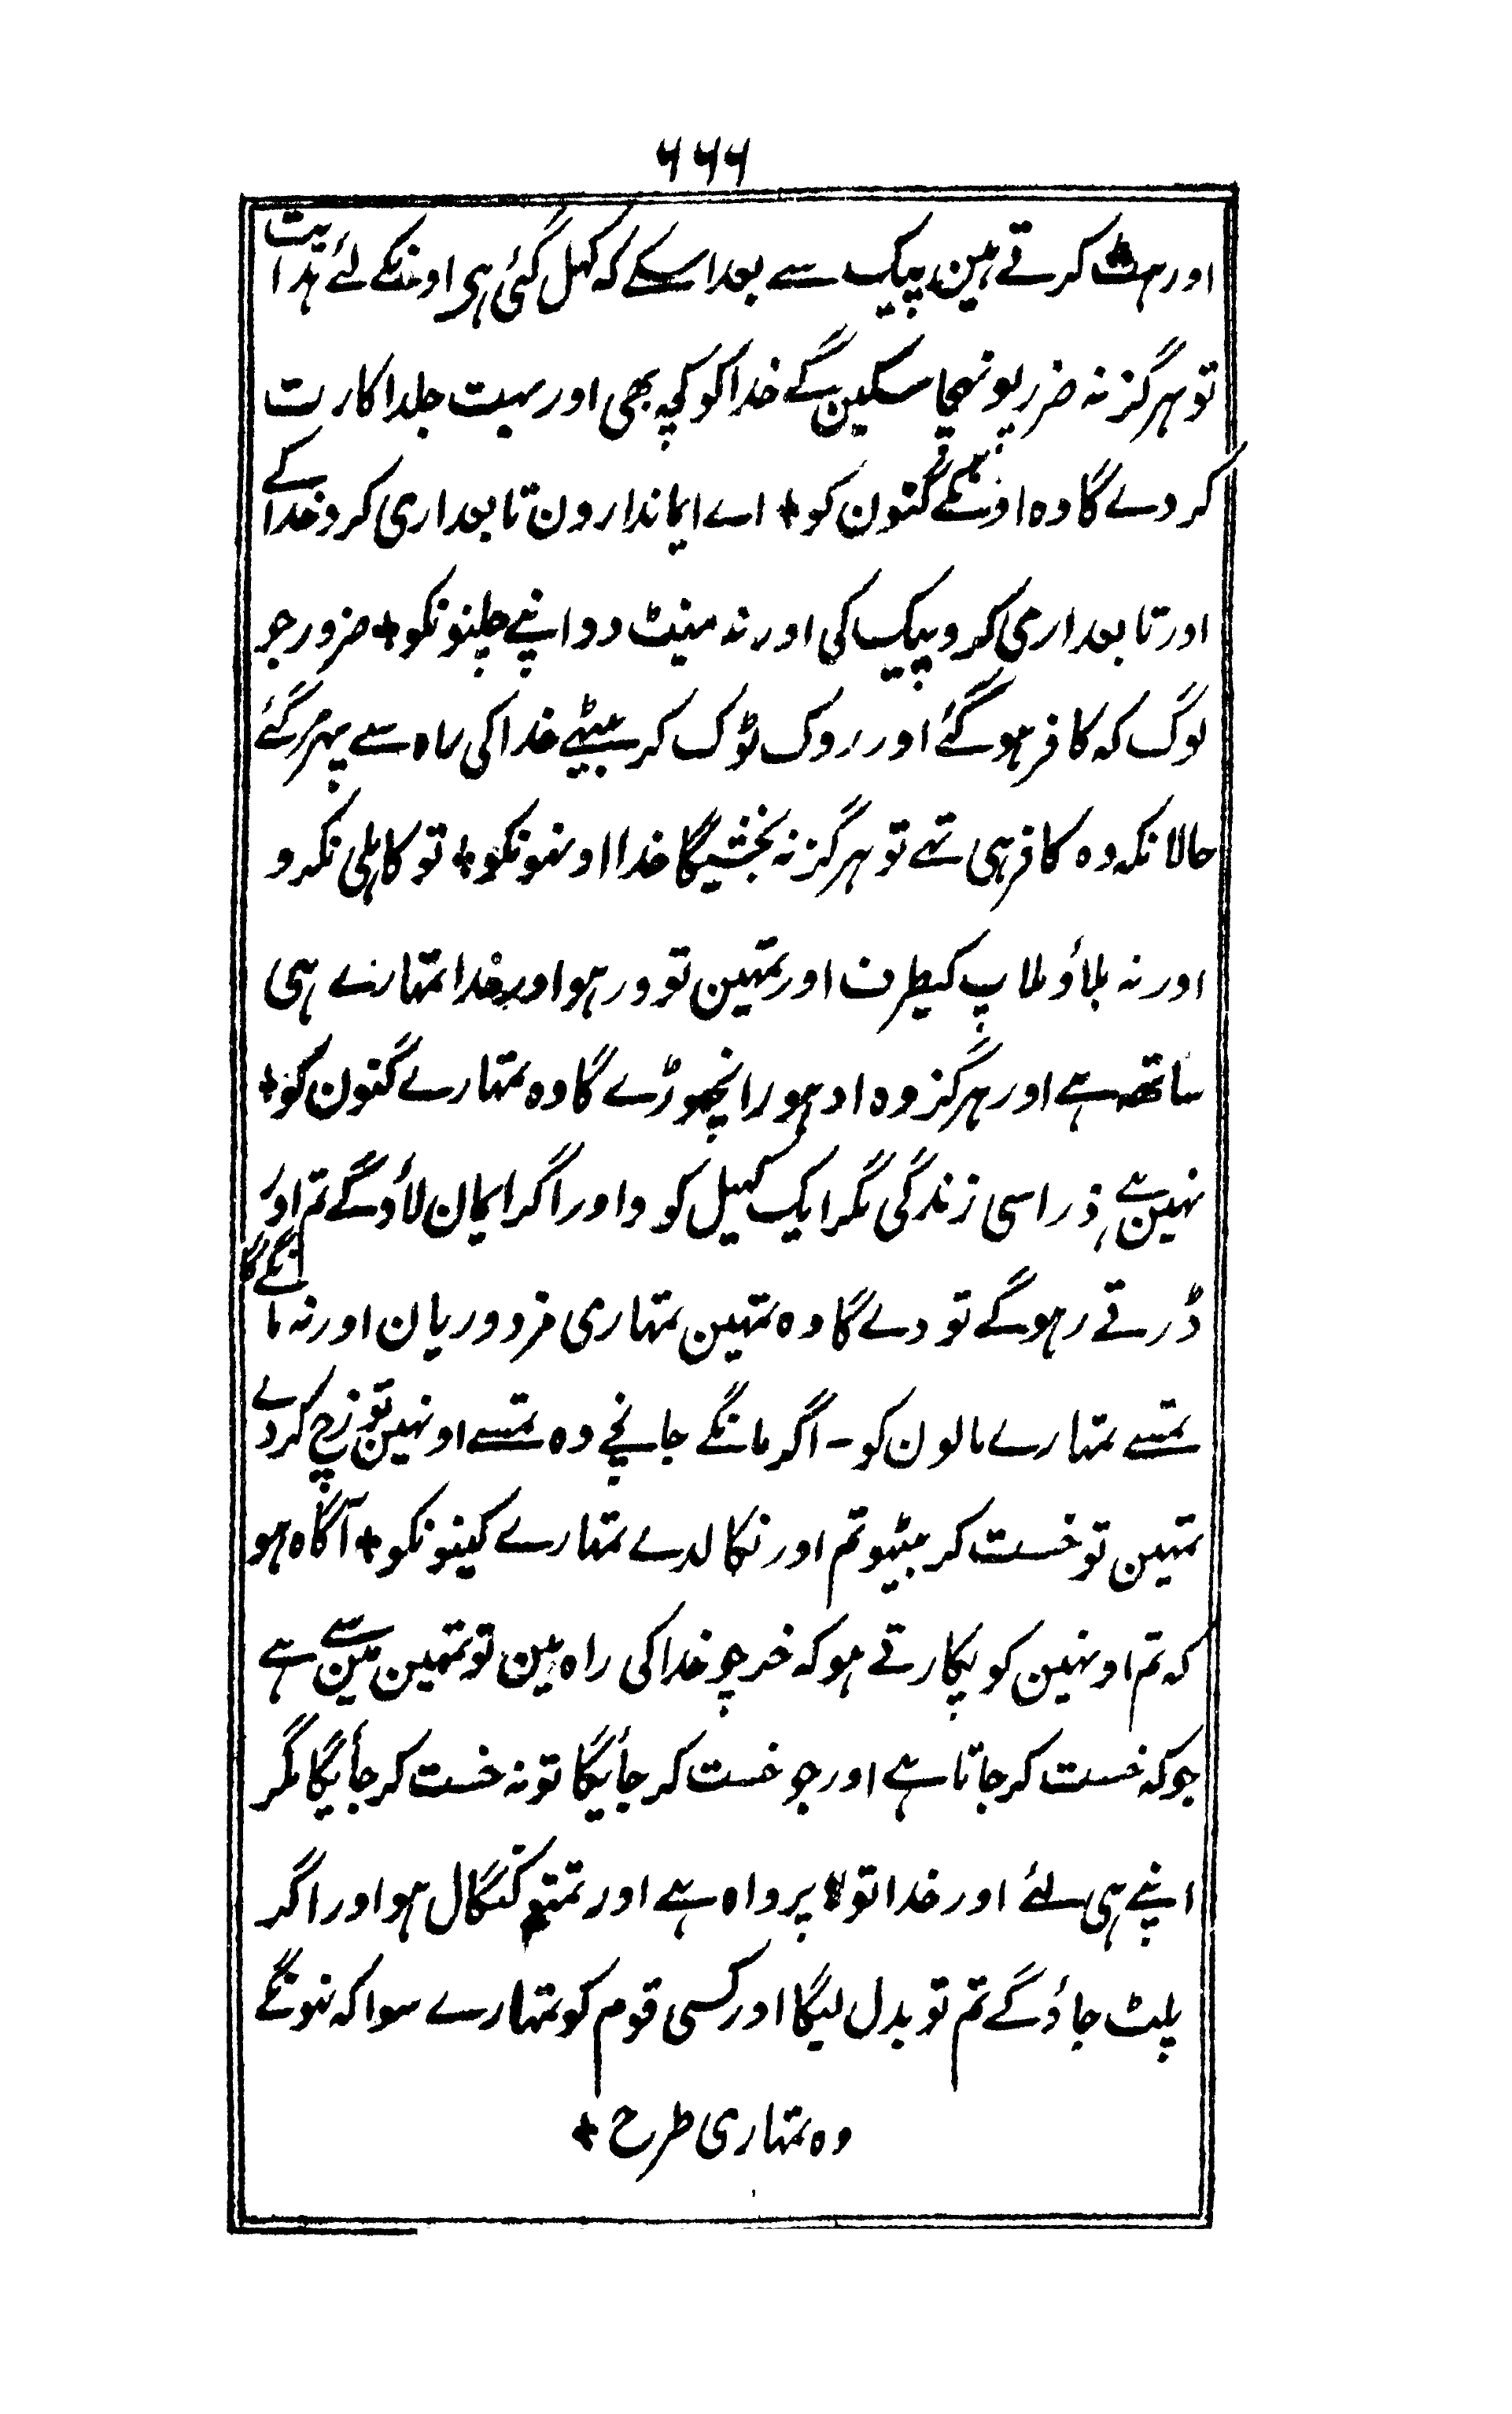 ۶۶۶
اور ہٹ کرتے ہین پیک سے بعد اسکے کہ کھل گئی ہی اونکے لئے ہدایت
تو ہرگز نہ ضرر پونہچا سکین گے خدا کو کچہ بھی اور بہت جلد اکارت
کر دے گا وہ اونکے گنتون کو + اے ایماندارون تابعداری کرو خدا کے
اور تابعداری کرو پیک کی اور نہ مینٹ دو اپنے چلنونکو + ضرور جو
لوگ کہ کافر ہوگئے اور روک ٹوک کر بیٹھے خدا کی راہ سے پہر مر گئے
حالانکہ وہ کافر ہی تھے تو ہرگز نہ بخشیگا خدا اونہونکو + تو کاہلی نکرو
اور نہ بلاؤ ملاپ کیطرف اور تمہین تو ور ہو اور خدا تمہارے ہی
ساتھہ ہے اور ہرگز وہ ادہورا نچھوڑے گا وہ تمہارے گنتون کو +
نہین ہے ذرا سی زندگی مگر ایک کہیل کود اور اگر ایمان لاؤ گے تم اور
ڈرتے رہو گے تو دے گا وہ تمہین تمہاری مزدوریان اور نہ مانگے گا
تمسے تمہارے مالون کو - اگر مانگے جانچے وہ تمسے اونہین تو زچ کردے
تمہین تو خست کر بیٹھو تم اور نکالدے تمہارے کینونکو + آگاہ ہو
کہ تم اونہین کو پکارتے ہو کہ خرچو خدا کی راہ مین تو تمہین مین سے ہے
جو کہ خست کر جاتا ہے اور جو خست کر جائیگا تو نہ خست کر جائیگا مگر
اپنے ہی لئے اور خدا تو لا پرواہ ہے اور تمتو کنگال ہو اور اگر
پلٹ جاؤ گے تم تو بدل لیگا اور کسی قوم کو تمہارے سوا کہ نہونگے
وہ تمہاری طرح +